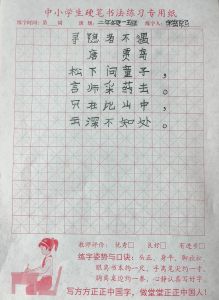 中小学生硬笔书法练习专用纸
寻隐者不遇
唐 贾岛
松下问童子，
言师采药去。
只在此山中，
云深不知处。
教师评价：优秀□ 良好□ 有进步□
练字姿势与口诀：头正、身平、脚放松
眼离书本约一尺，手离笔尖约一寸，
胸离桌子约一拳，心静认真写好字。
写方方正正中国字，做堂堂正正中国人！